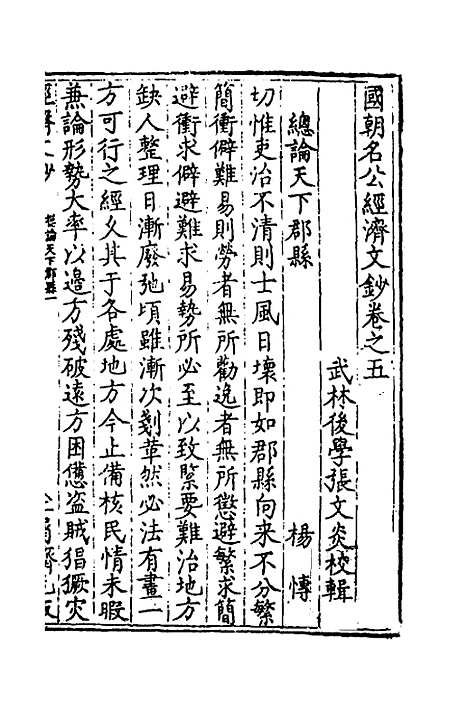 國朝名公經濟文鈔卷之五
武林後學張文炎校輯
總論天下郡縣 楊博
切惟吏治不清則士風日壞即如郡縣向来不分繁
簡衝僻難易則勞者無所勸逸者無所懲避繁求簡
避衝求僻避難求易勢所必至以致緊要難治地方
缺人整理日漸廢弛頃雖漸次剗革然必法有畫一
方可行之經久其于各處地方今止備核民情未暇
兼論形勢大率以邊方殘破遠方困憊盗賊猖獗灾
經濟文鈔 總論天下郡縣一